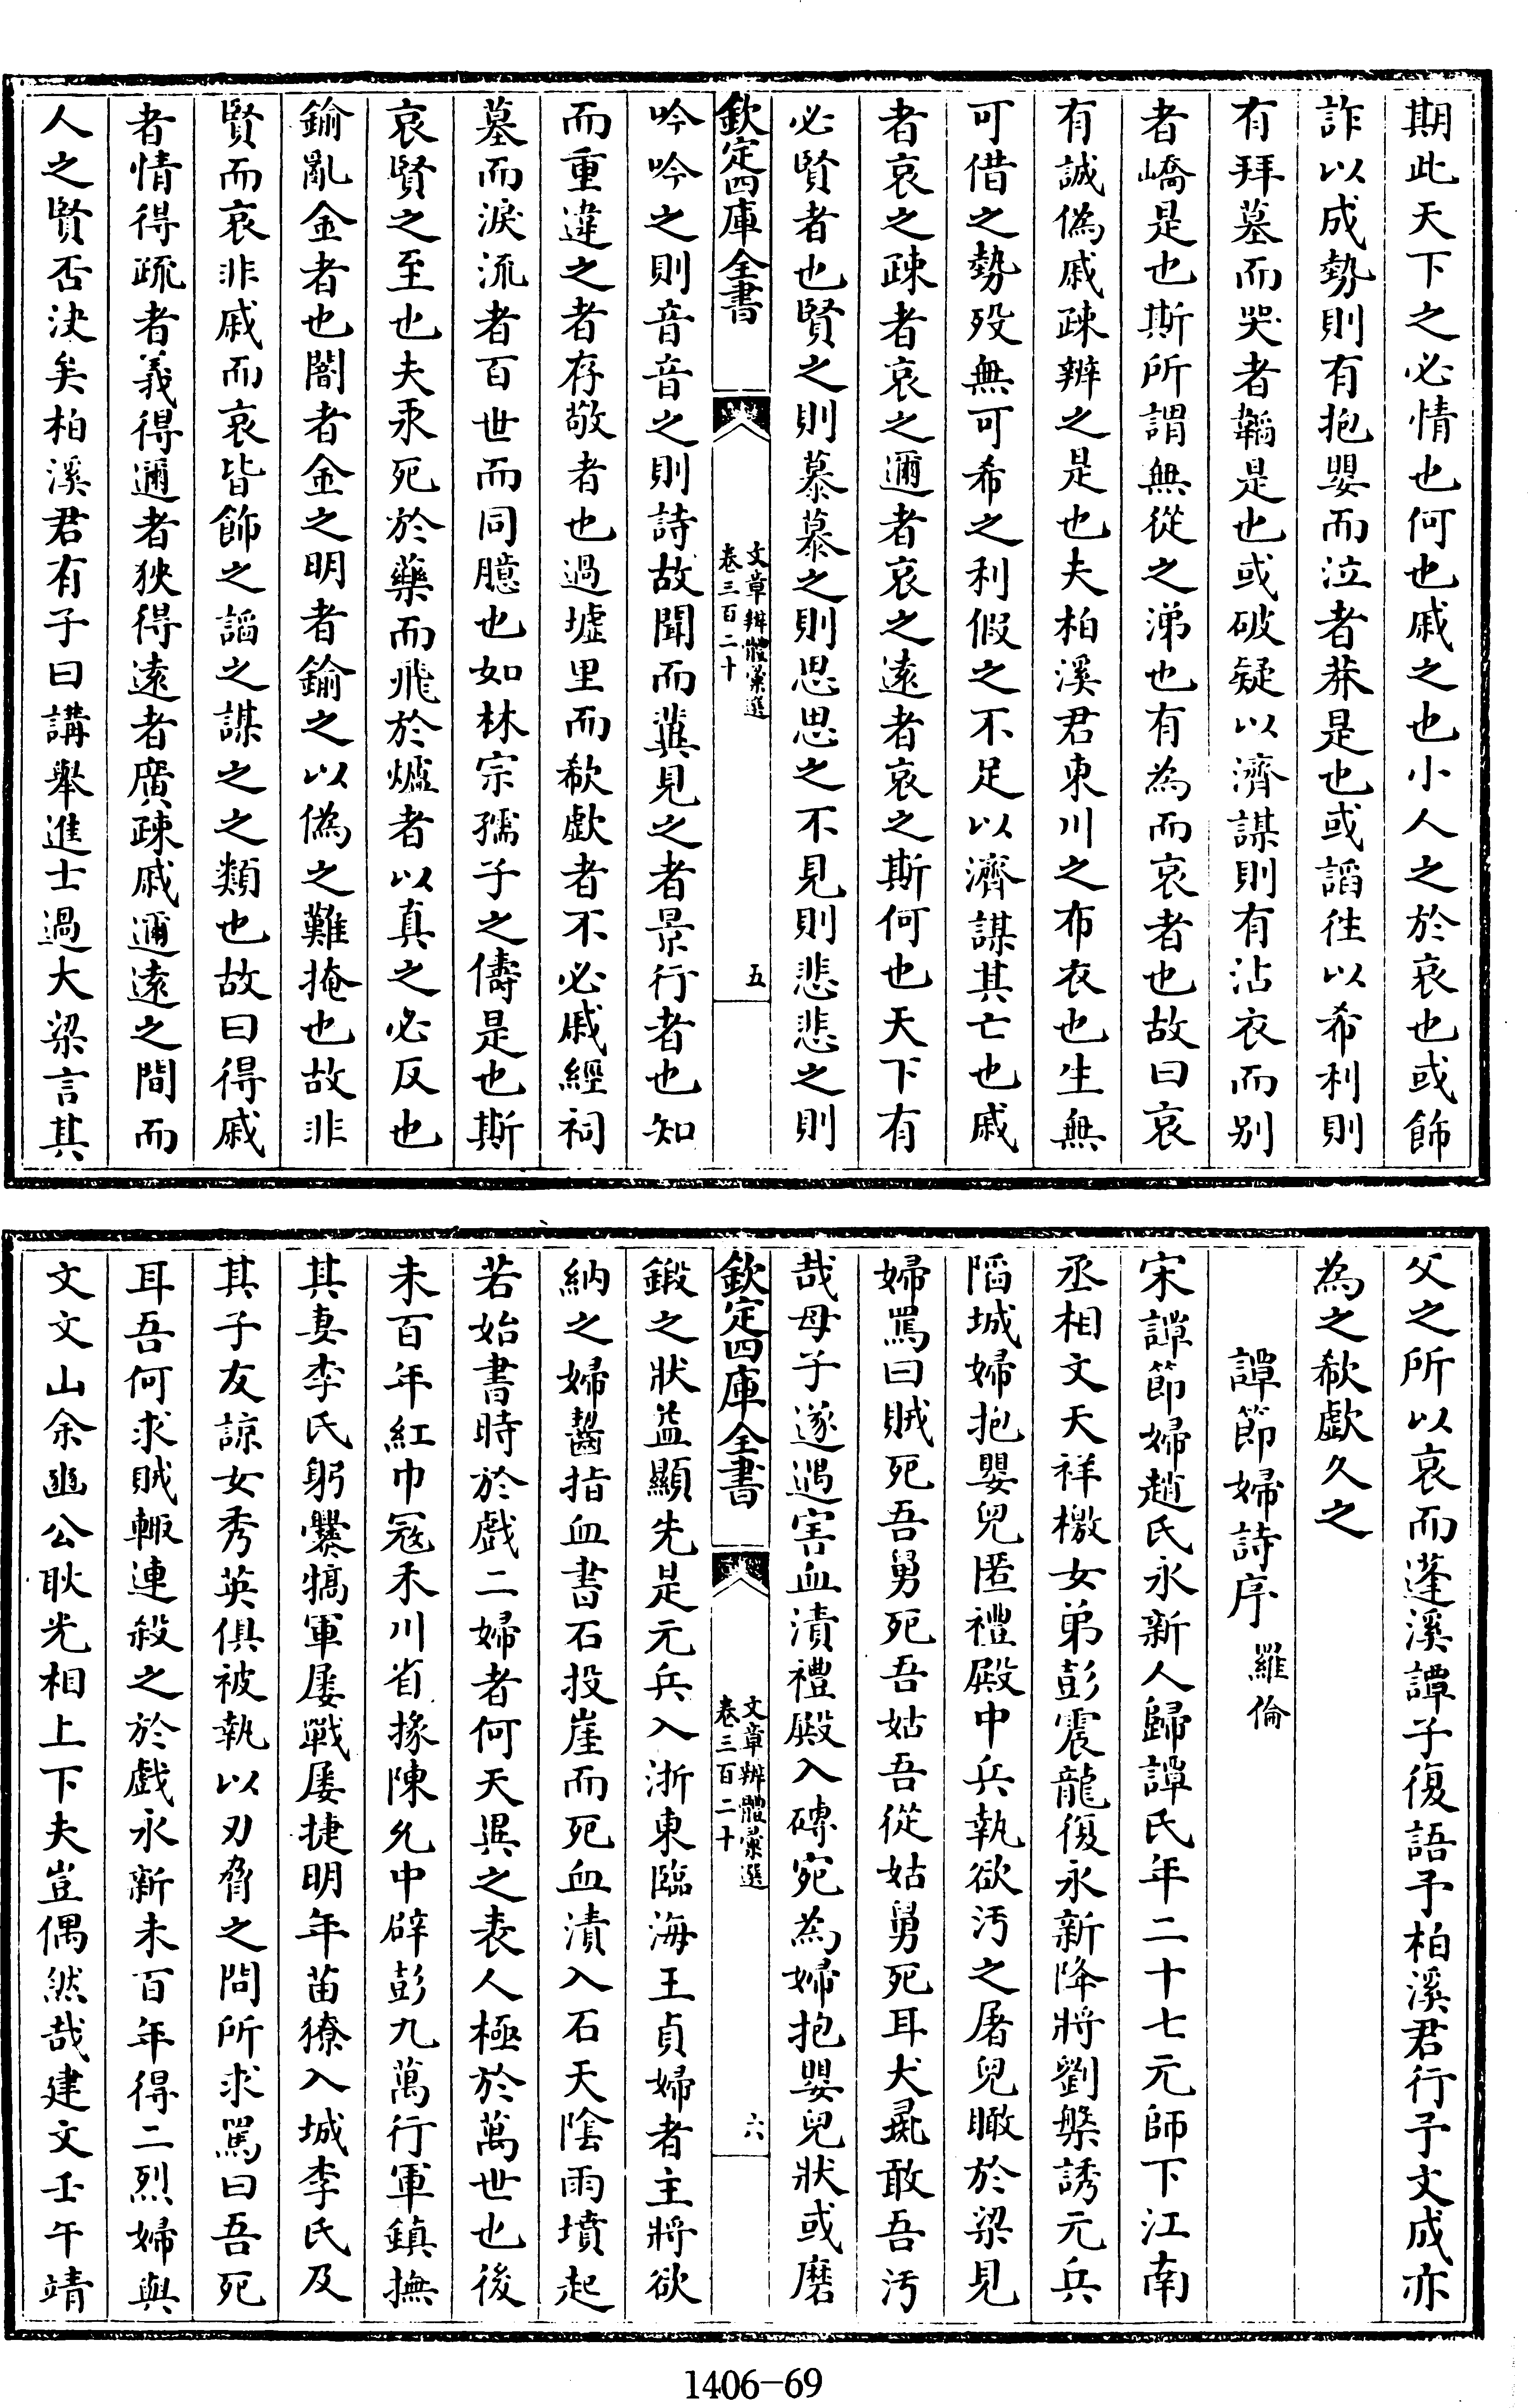 期此天下之必情也何也戚之也小人之於哀也或飾
詐以成勢則有抱嬰而泣者莽是也或謟徃以希利則
有拜墓而哭者韜是也或破疑以濟謀則有沾衣而别
者嶠是也斯所謂無從之涕也有為而哀者也故曰哀
有誠偽戚疎辨之是也夫柏溪君東川之布衣也生無
可借之勢歿無可希之利假之不足以濟謀其亡也戚
者哀之疎者哀之邇者哀之遠者哀之斯何也天下有
必賢者也賢之則慕慕之則思思之不見則悲悲之則
欽定四庫全書
文章辨體彙選
卷三百二十
五
吟吟之則音音之則詩故聞而兾見之者景行者也知
而重違之者存敬者也過墟里而欷歔者不必戚經祠
墓而淚流者百世而同臆也如林宗孺子之儔是也斯
哀賢之至也夫汞死於藥而飛於爐者以真之必反也
鍮亂金者也闇者金之明者鍮之以偽之難掩也故非
賢而哀非戚而哀皆飾之謟之謀之之類也故曰得戚
者情得疏者義得邇者狹得遠者廣疎戚邇遠之間而
人之賢否決矣柏溪君有子曰講舉進士過大梁言其
父之所以哀而蓬溪譚子復語予柏溪君行予文成亦
為之欷歔久之
譚節婦詩序 羅倫
宋譚節婦趙氏永新人歸譚氏年二十七元師下江南
丞相文天祥檄女弟彭震龍復永新降將劉槃誘元兵
陷城婦抱嬰兒匿禮殿中兵執欲汚之屠兒瞰於梁見
婦罵曰賊死吾舅死吾姑吾從姑舅死耳犬彘敢吾汚
哉母子遂遇害血漬禮殿入磚宛為婦抱嬰兒狀或磨
欽定四庫全書
文章辨體彙選
卷三百二十
六
鍛之狀益顯先是元兵入浙東臨海王貞婦者主將欲
納之婦齧指血書石投崖而死血漬入石天陰雨墳起
若始書時於戲二婦者何天異之表人極於萬世也後
未百年紅巾冦禾川省掾陳允中辟彭九萬行軍鎮撫
其妻李氏躬爨犒軍屢戰屢捷明年苗獠入城李氏及
其子友諒女秀英俱被執以刃脅之問所求罵曰吾死
耳吾何求賊輙連殺之於戲永新未百年得二烈婦與
文文山余豳公耿光相上下夫豈偶然哉建文壬午靖
1406-69